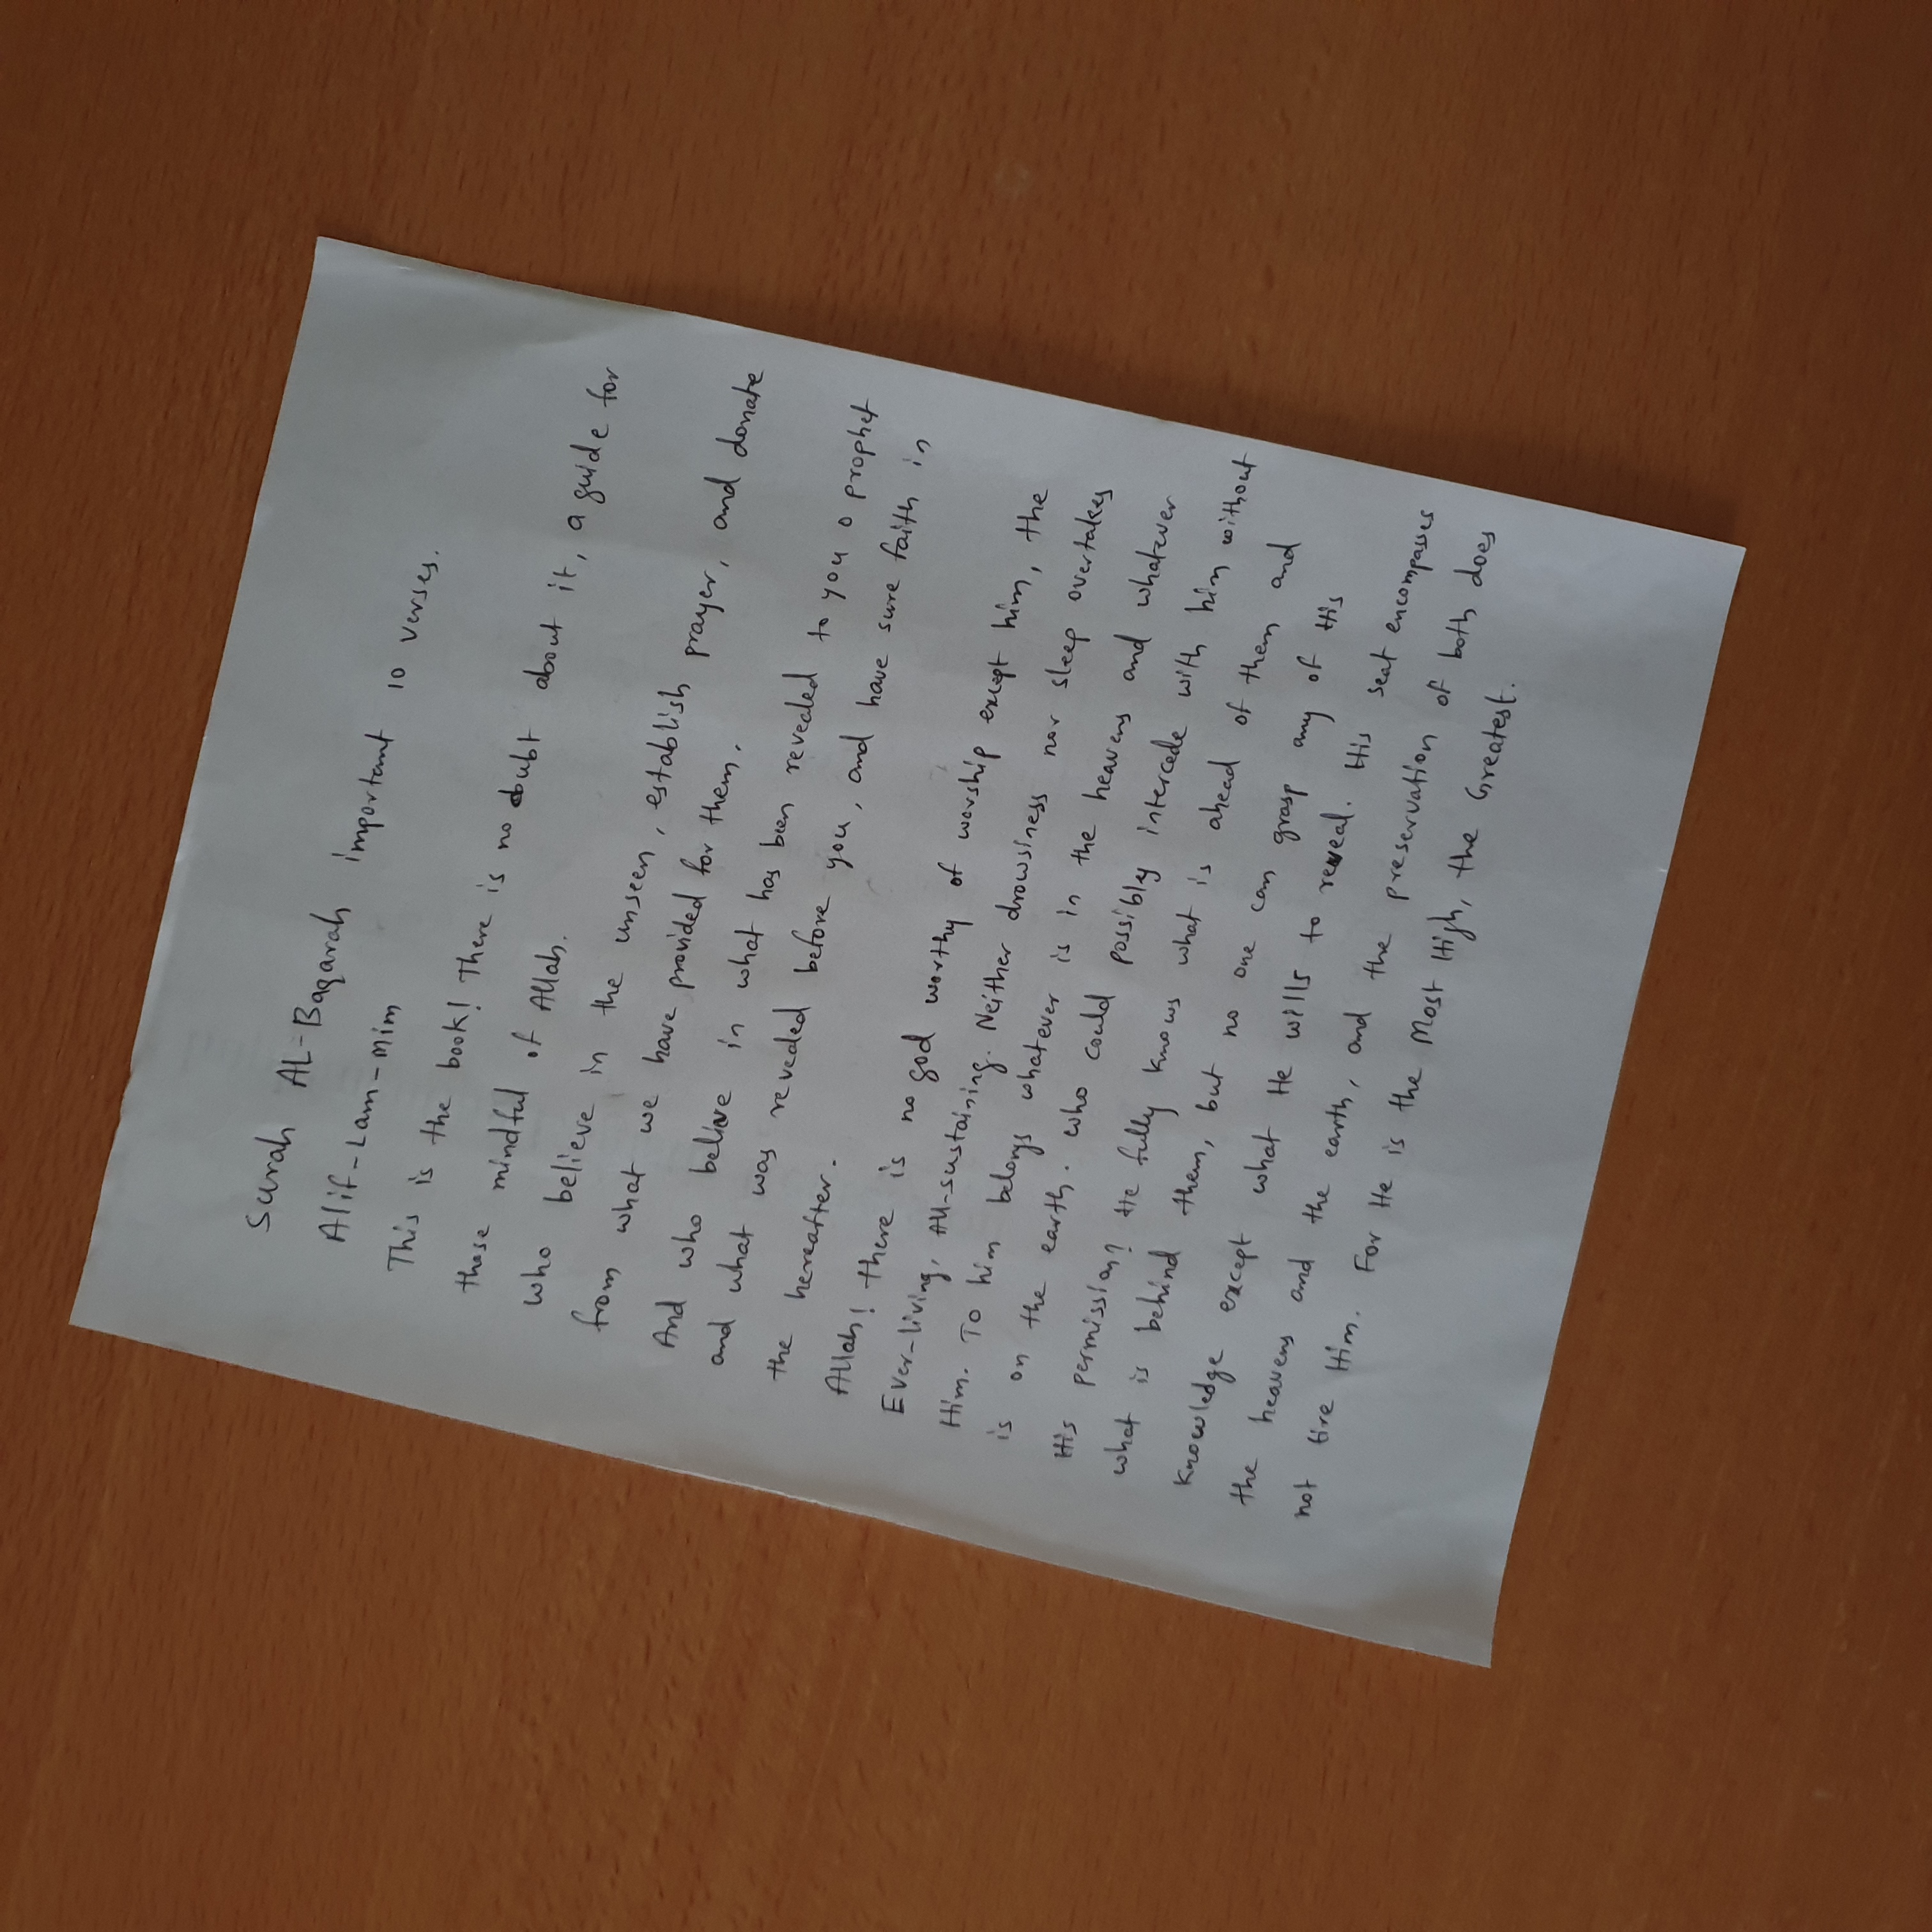 Surah AL-Baqarah important 10 verses.
Alif-Lam-mim
This is the book! There is no doubt about it, a guide for
those mindful of Allah.
who believe in the unseen, establish prayer, and donate
from what we have provided for them.
And who believe in what has been revealed to you o prophet
and what was revealed before you, and have sure faith in
the hereafter.
Allah! there is no god worthy of worship except him, the
Ever-living, All-sustaining. Neither drowsiness nor sleep overtakes
Him. To him belongs whatever is in the heavens and whatever
is on the earth. who could possibly intercede with him without
His permission? He fully knows what is ahead of them and
what is behind them, but no one can grasp any of His
Knowledge except what He wills to reveal. His seat encompasses
the heavens and the earth, and the preservation of both does
not tire Him. For He is the Most High, the Greatest.